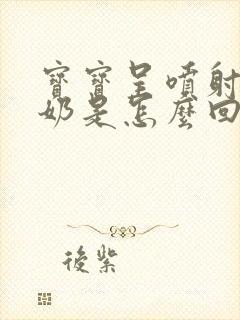 寶寶呈噴射
奶是怎麼回
後紫